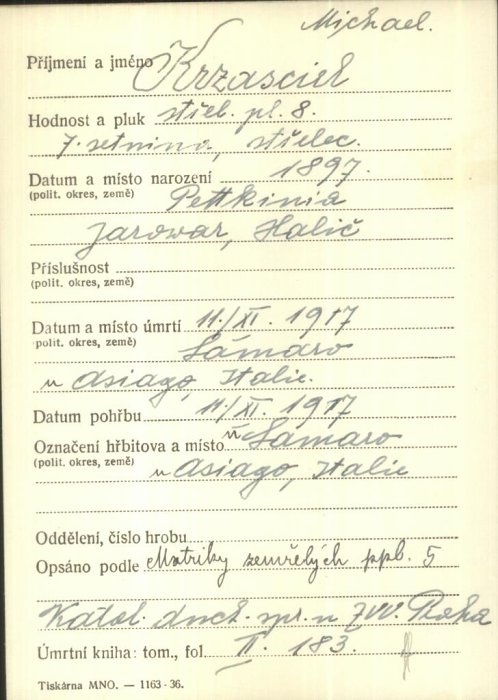 Michael.
Příjmení a jméno Krzasciel
Hodnost a pluk střel. pl. 8.
7. setnina, střelec.
Datum a místo narození 1897.
(polit. okres, země) Pettkinia
Jarowar, Halič
Příslušnost
(polit. okres, země)
Datum a místo úmrtí 11./XI. 1917
(polit. okres, země) Lámaro
u Asiago, Italie.
Datum pohřbu 11/XI. 1917
Označení hřbitova a místo u Lamaro
(polit. okres, země) u Asiago, Italie
Oddělení, číslo hrobu
Opsáno podle Matriky zemřelých ppl. 5
Katol. duch. spr. u ZVV. Praha
Úmrtní kniha: tom., fol. II. 183.
Tiskárna MNO. — 1163-36.